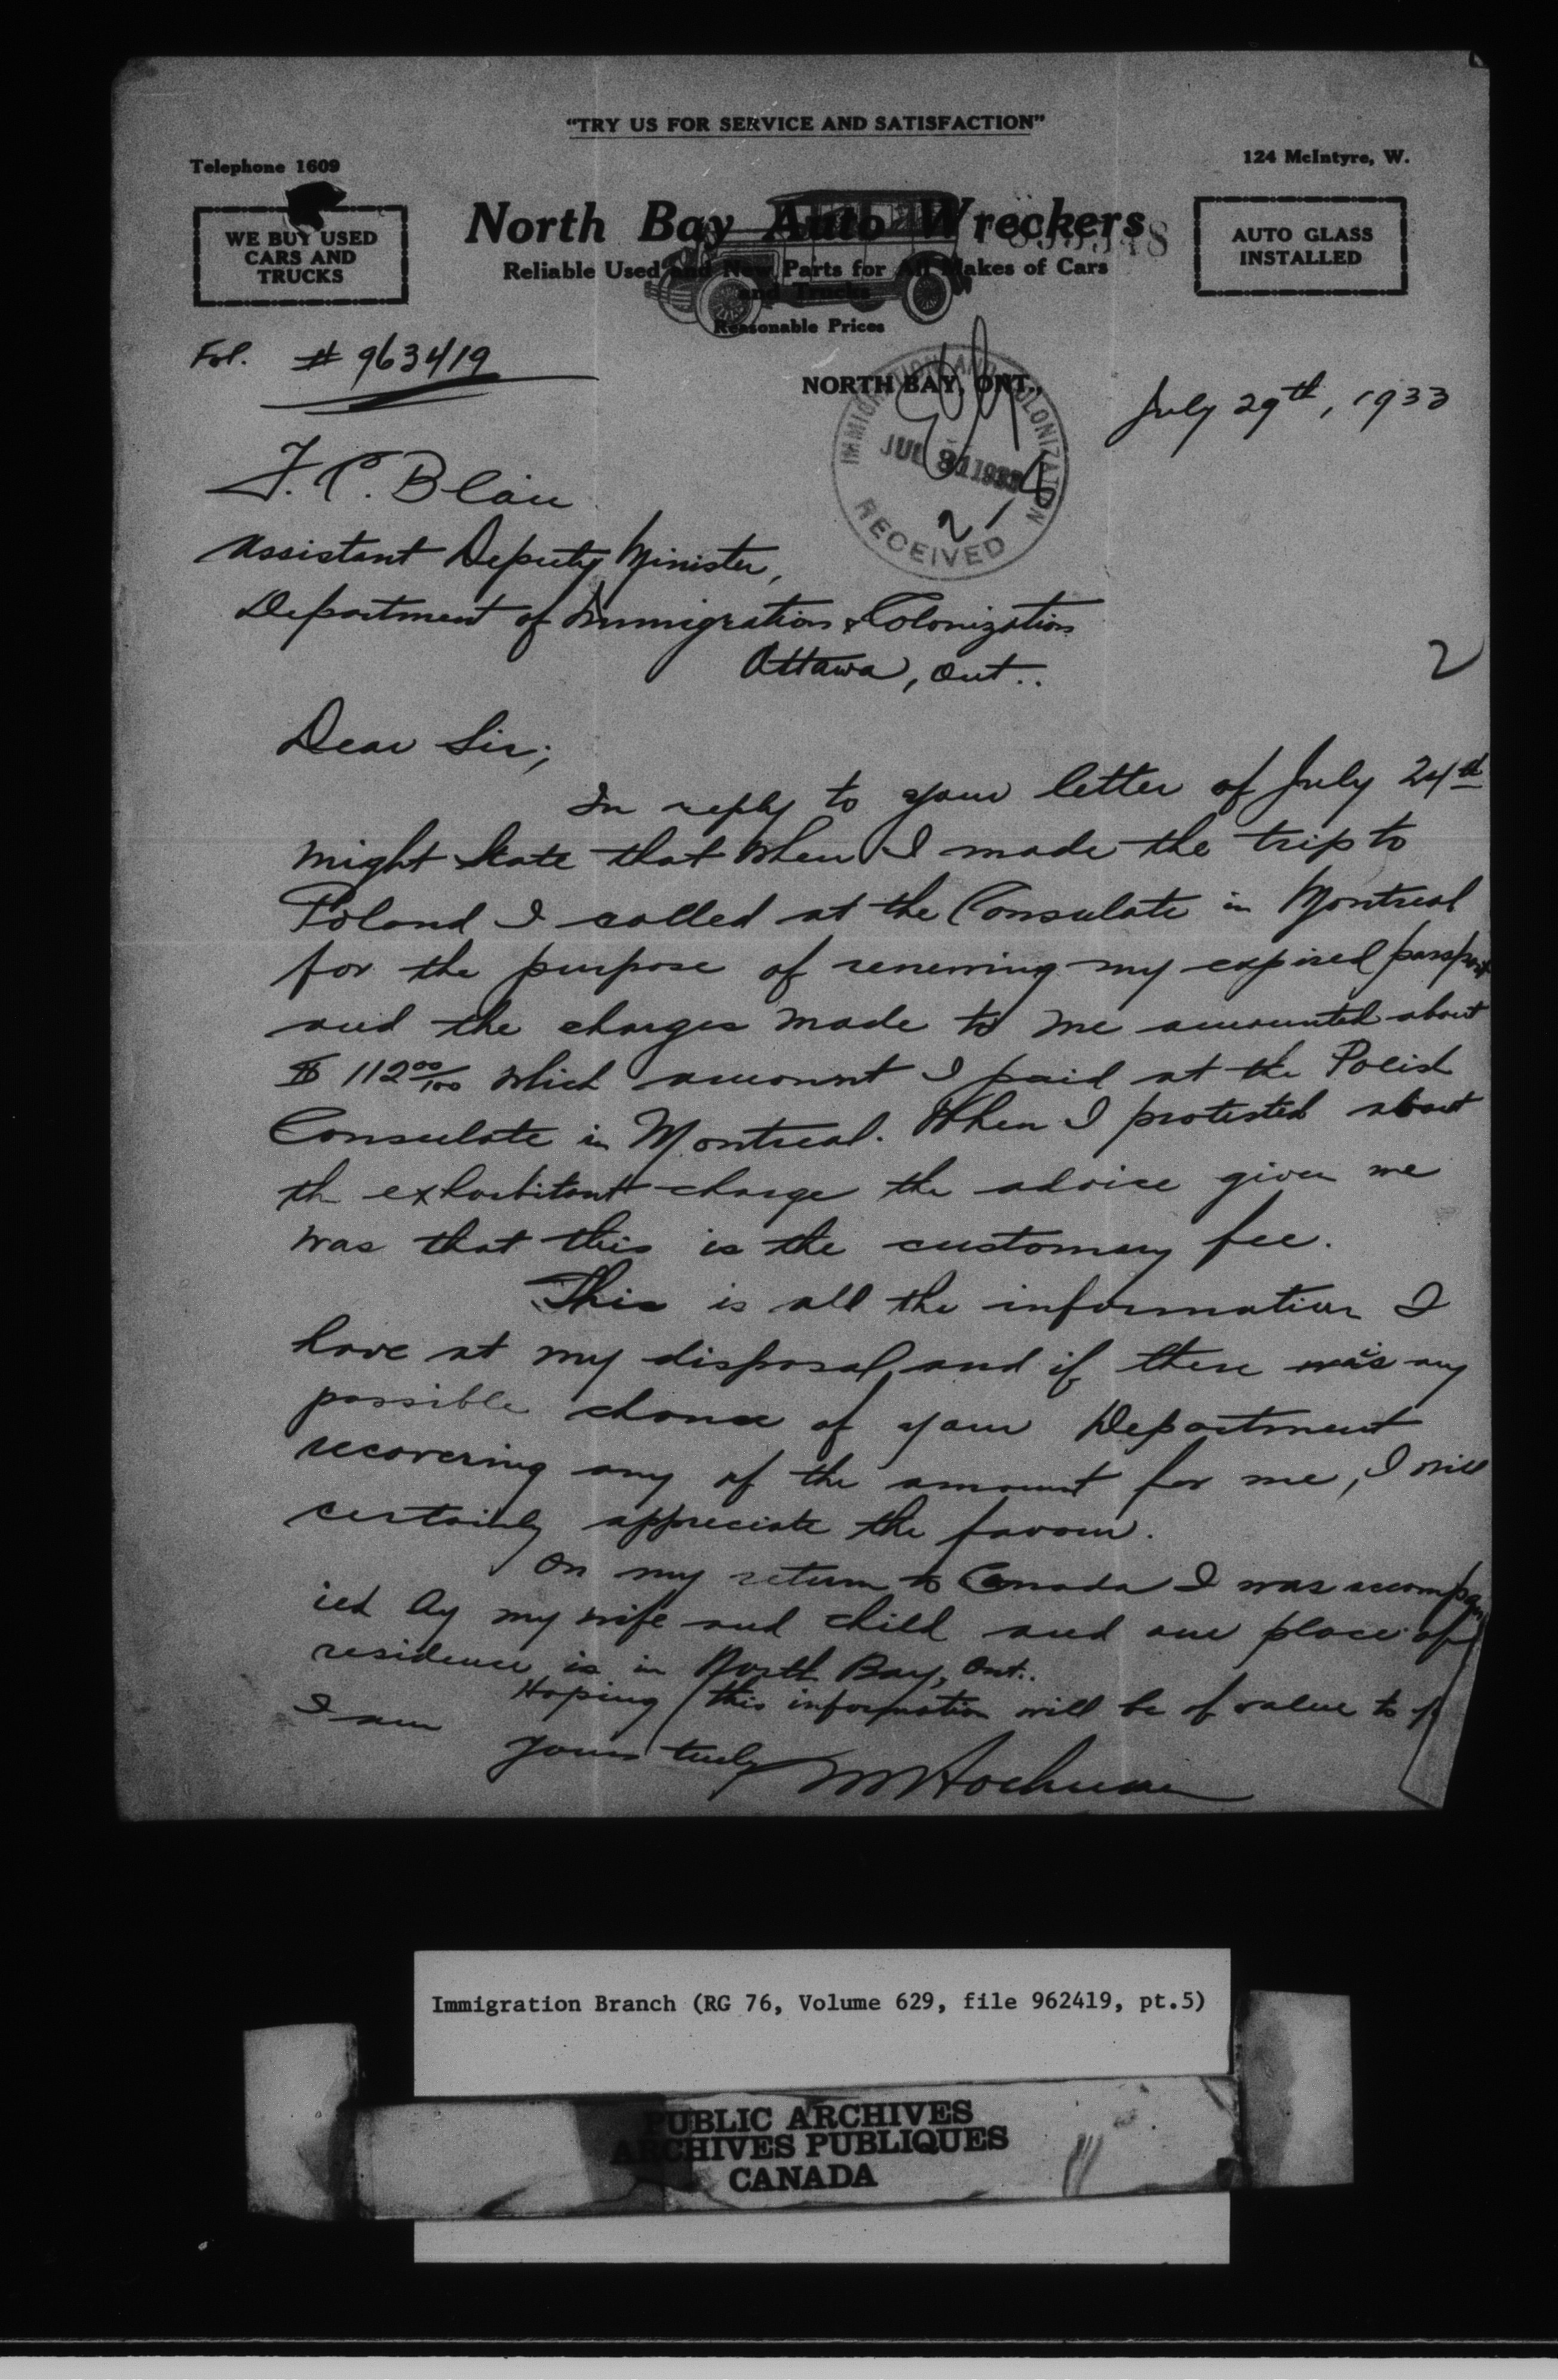 "TRY US FOR SERVICE AND SATISFACTION"
Telephone 1609
124 McIntyre, W.
WE BUY USED
CARS AND
TRUCKS
North Bay Auto Wreckers
AUTO GLASS
INSTALLED
Reliable Used and New Parts for All Makes of Cars
and Trucks
Reasonable Prices
# 963419
NORTH BAY, ONT.,
July 29th, 1933
IMMIGRATION AND COLONIZATION
JUL 31 1933
RECEIVED
2
F. C. Blair
Assistant Deputy Minister,
Department of Immigration & Colonization
Ottawa, Ont..
2
Dear Sir;
In reply to your letter of July 24th
might state that when I made the trip to
Poland I called at the Consulate in Montreal
for the purpose of renewing my expired passport
and the charges made to me amounted about
$ 112 00/100 which amount I paid at the Polish
Consulate in Montreal. When I protested about
th exhorbitant charge the advice given me
was that this is the customary fee.
This is all the information I
have at my disposal, and if there was any
possible chance of your Department
recovering any of the amount for me, I will
certainly appreciate the favour.
On my return to Canada I was accompan
ied by my wife and child and our place of
residence is in North Bay, Ont..
Hoping this information will be of value to
I am
Yours truly
Immigration Branch (RG 76, Volume 629, file 962419, pt.5)
PUBLIC ARCHIVES
ARCHIVES PUBLIQUES
CANADA